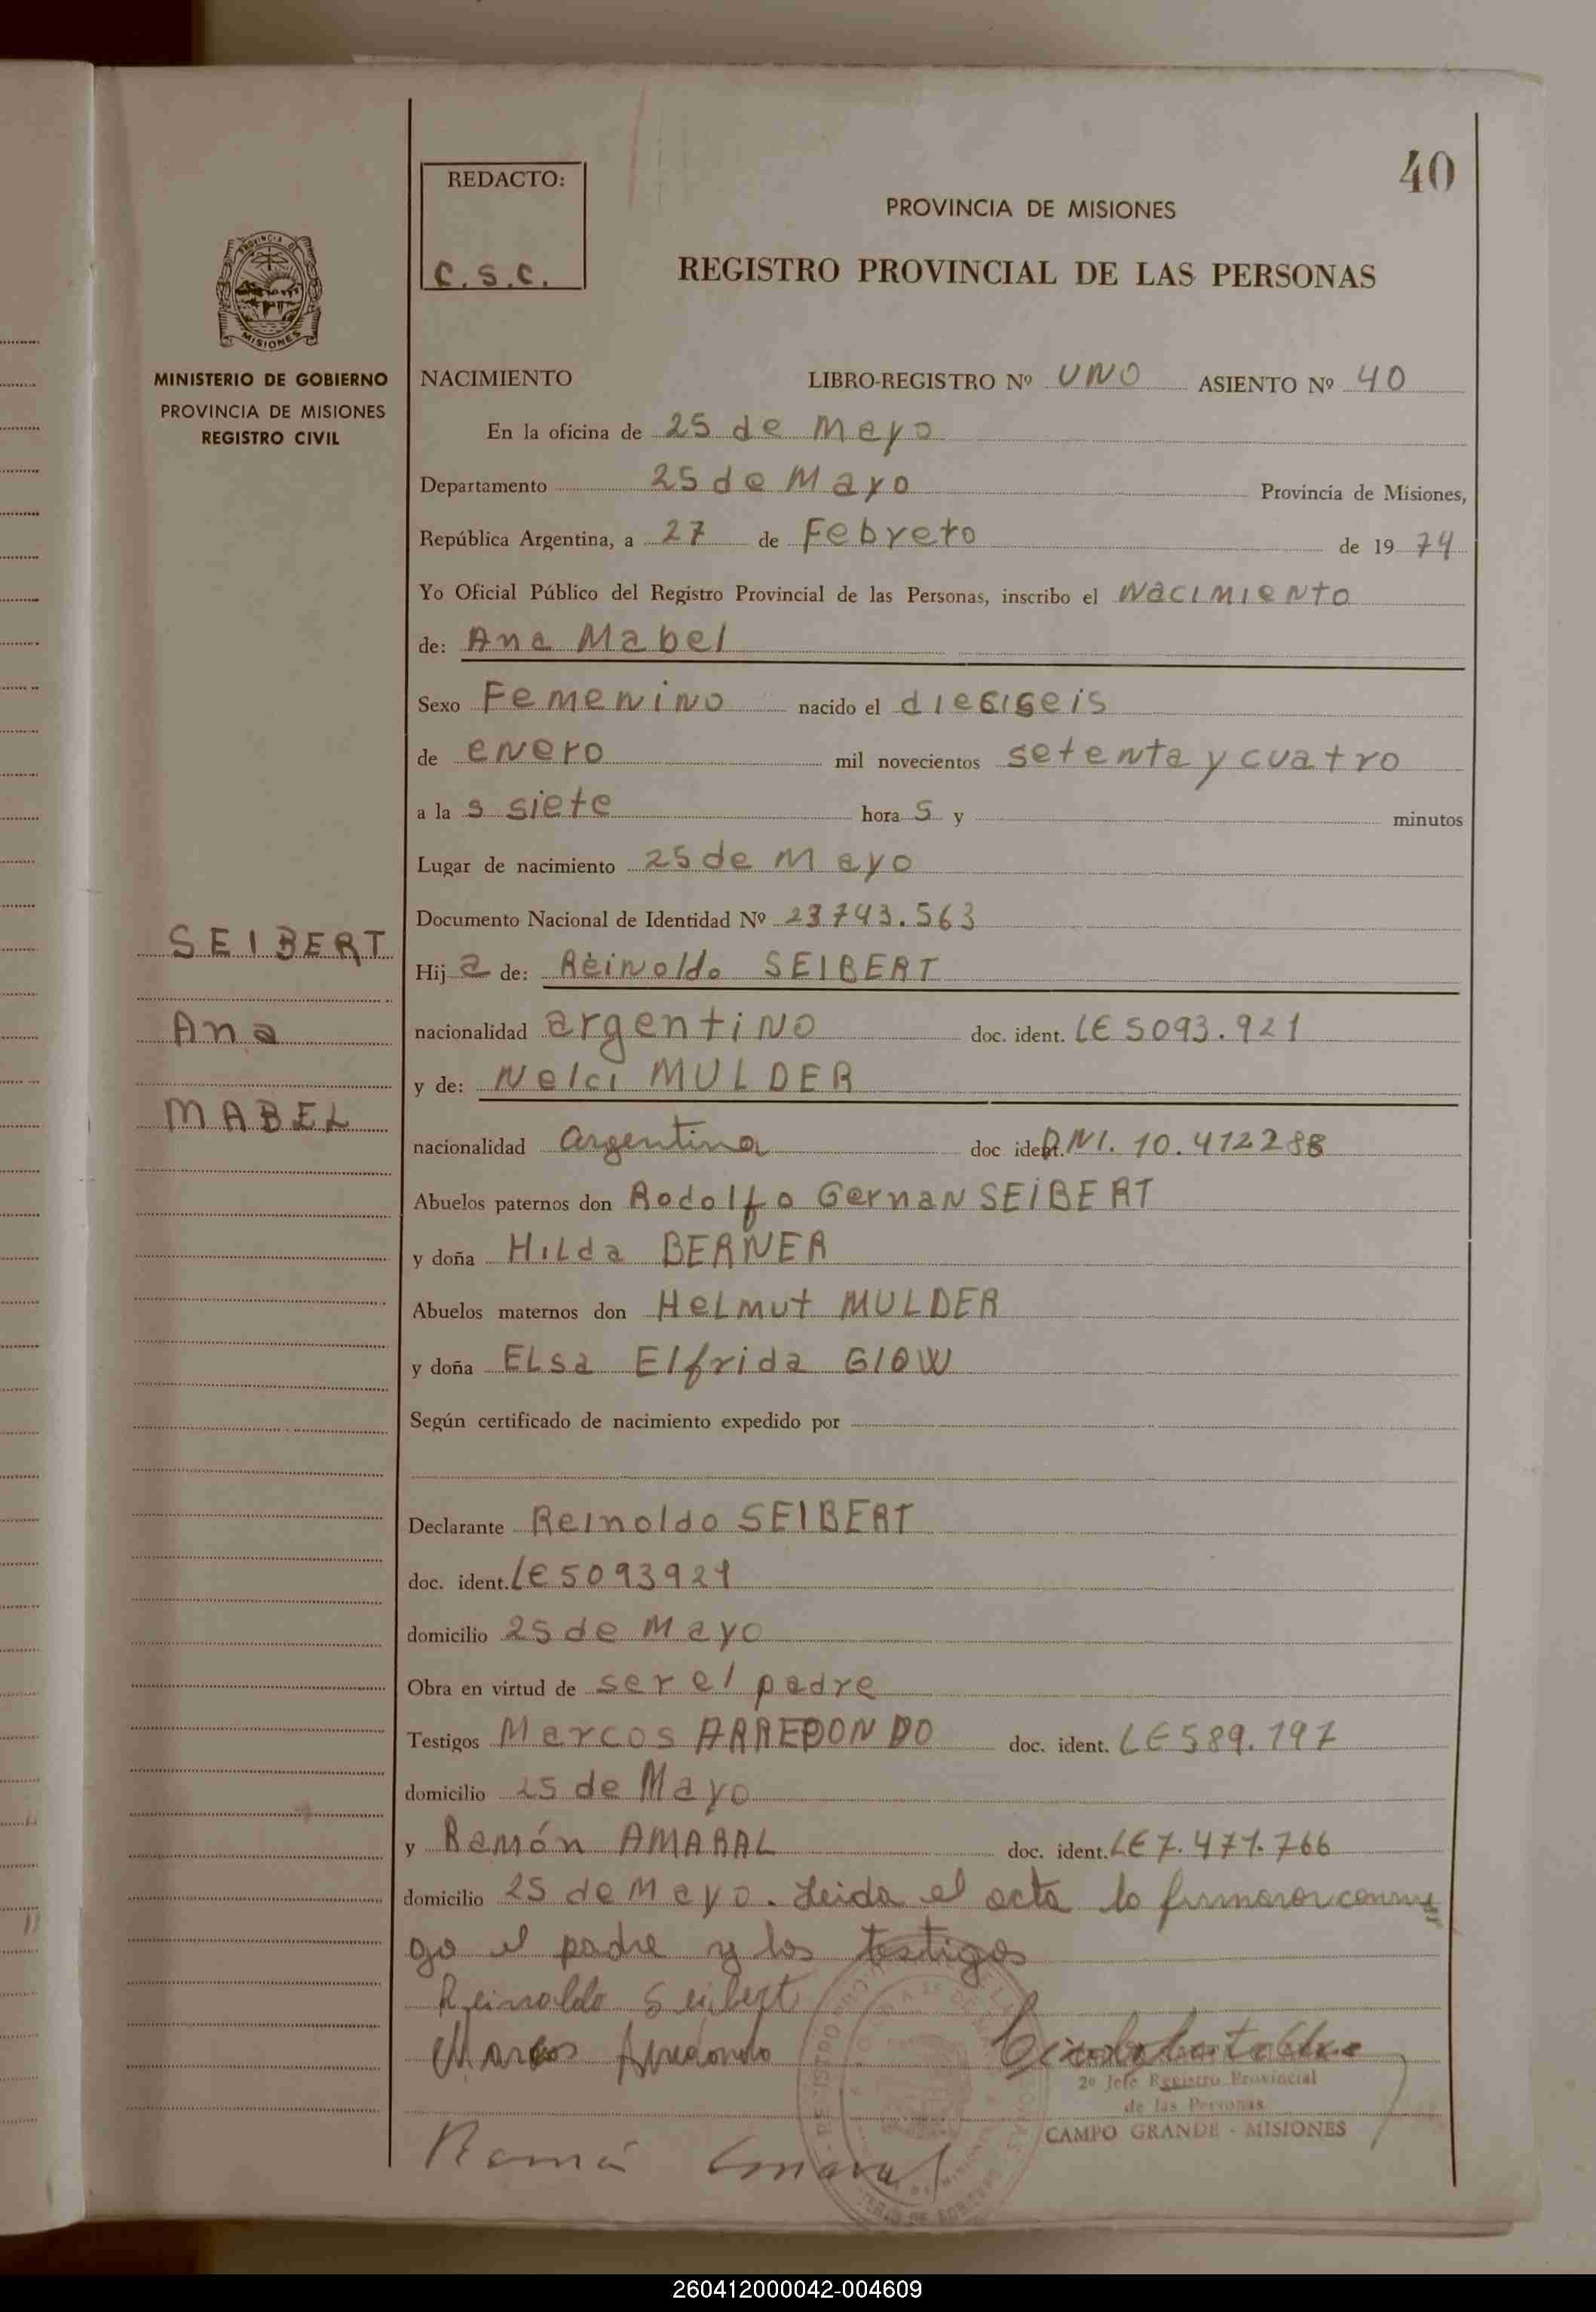 40
REDACTO:
C.S.C.
PROVINCIA DE MISIONES
REGISTRO PROVINCIAL DE LAS PERSONAS
PROVINCIA DE
MISIONES
MINISTERIO DE GOBIERNO
PROVINCIA DE MISIONES
REGISTRO CIVIL
NACIMIENTO LIBRO-REGISTRO Nº UNO ASIENTO Nº 40
En la oficina de 25 de Mayo
Departamento 25 de Mayo Provincia de Misiones,
República Argentina, a 27 de Febrero de 1974
Yo Oficial Público del Registro Provincial de las Personas, inscribo el Nacimiento
de: Ana Mabel
Sexo Femenino nacido el diesiseis
de enero mil novecientos setenta y cuatro
a las siete horas y minutos
Lugar de nacimiento 25 de Mayo
Documento Nacional de Identidad Nº 23743.563
SEIBERT
Hija de: Reinoldo SEIBERT
Ana
nacionalidad argentino doc. ident. LE 5093.921
y de: Nelci MULDER
MABEL
nacionalidad argentina doc ident. DNI. 10.412288
Abuelos paternos don Rodolfo German SEIBERT
y doña Hilda BERNER
Abuelos maternos don Helmut MULDER
y doña Elsa Elfrida GLOW
Según certificado de nacimiento expedido por
Declarante Reinoldo SEIBERT
doc. ident. LE 5093921
domicilio 25 de Mayo
Obra en virtud de ser el padre
Testigos Marcos ARREDONDO doc. ident. LE 589.197
domicilio 25 de Mayo
y Ramón AMARAL doc. ident. LE 7.471.766
domicilio 25 de Mayo. Leida el acta la firmaron conmi
go el padre y los testigos
Reinoldo Seibert
Marcos Arredondo
2º Jefe Registro Provincial
de las Personas
CAMPO GRANDE - MISIONES
Ramón Amaral
260412000042-004609